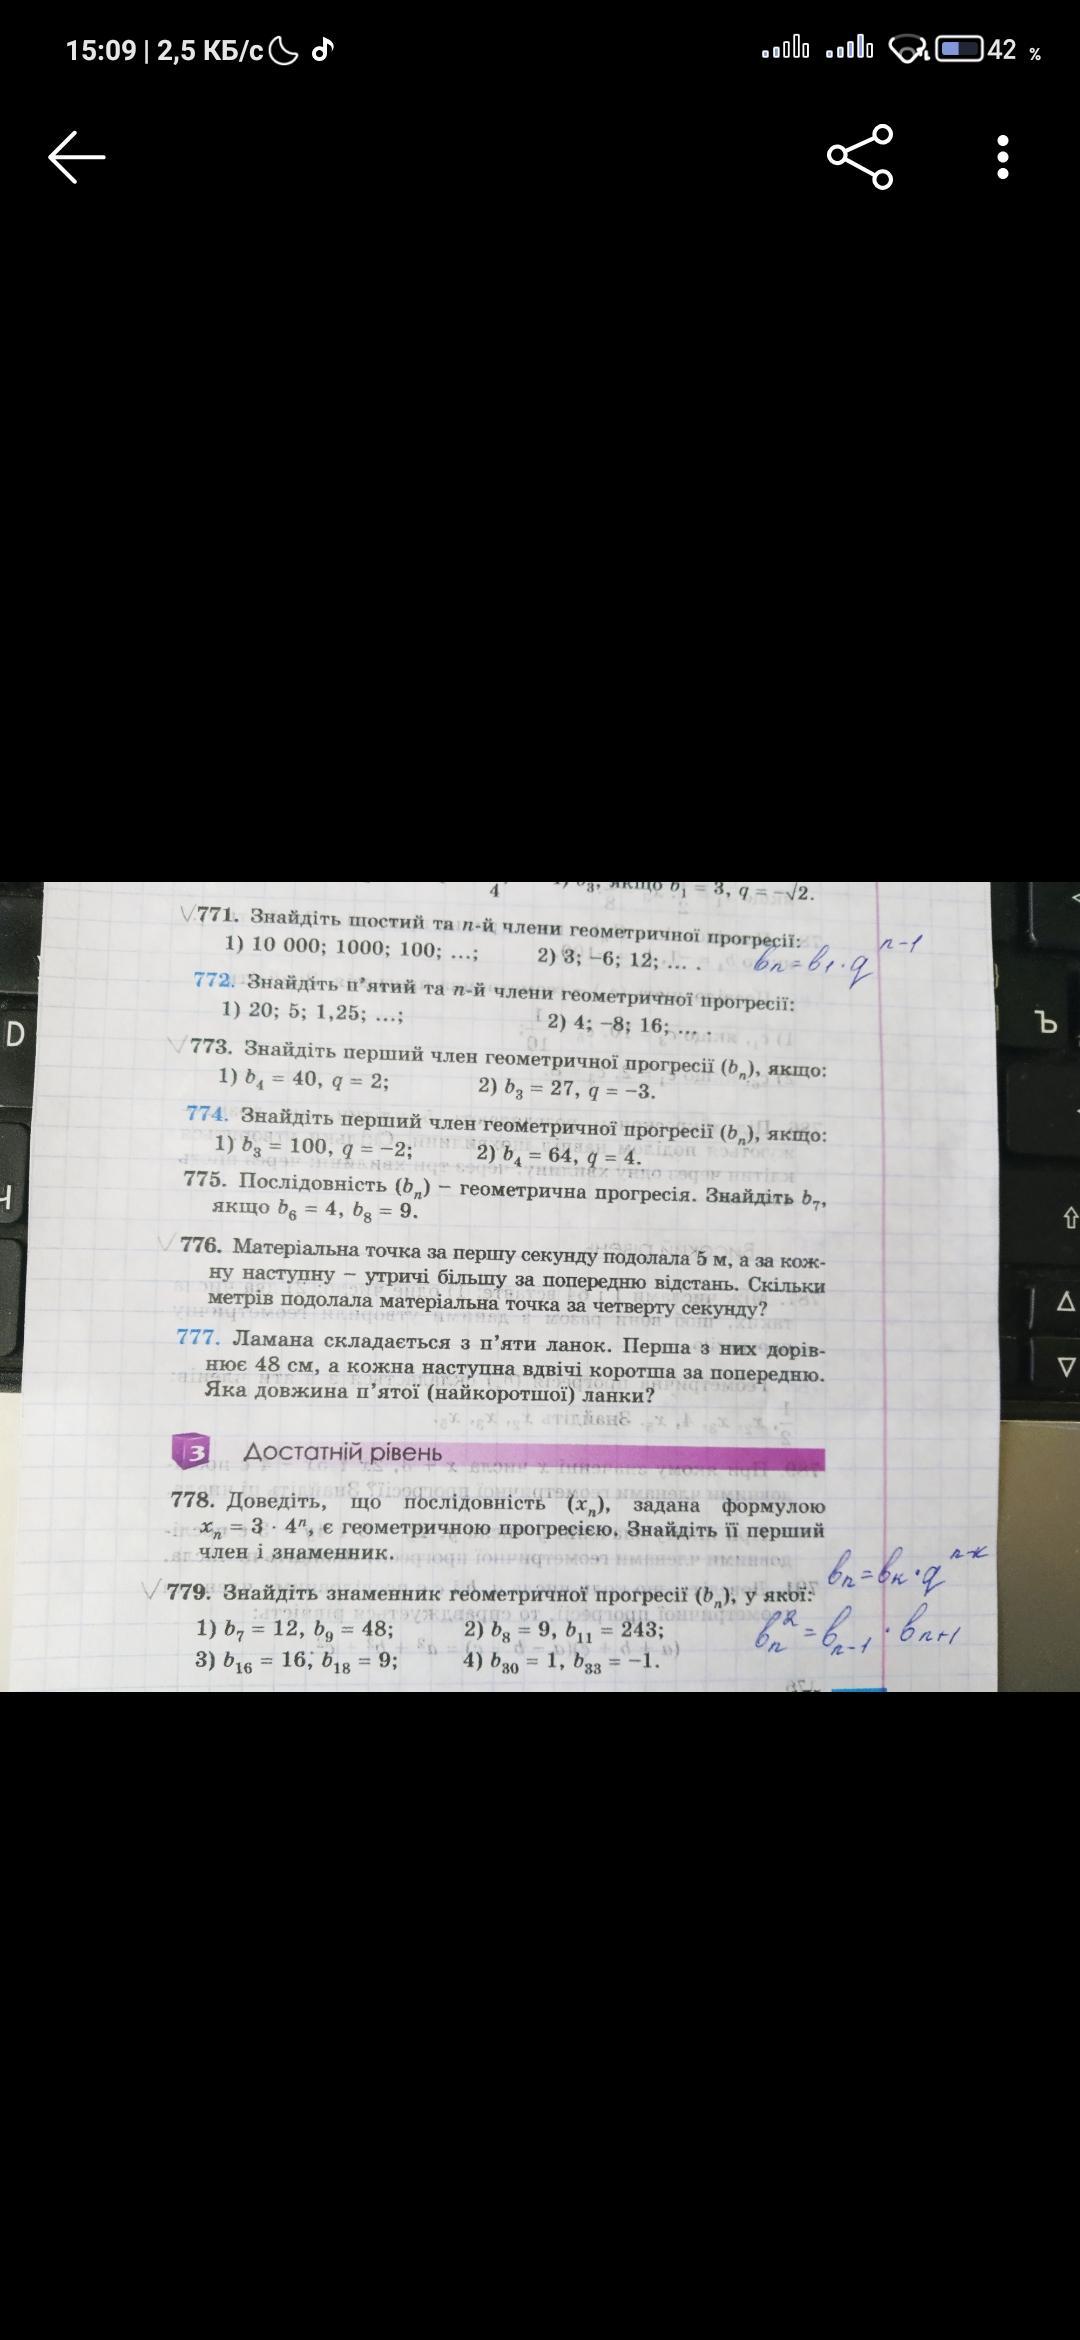 15:09 | 2,5 КБ/с 42 %
4 якщо b₁ = 3, q = −√2.
771. Знайдіть шостий та n-й члени геометричної прогресії:
1) 10 000; 1000; 100; ...; 2) 3; −6; 12; ... . bn = b1 · q^(n−1)
772. Знайдіть п’ятий та n-й члени геометричної прогресії:
1) 20; 5; 1,25; ...; 2) 4; −8; 16; ... .
773. Знайдіть перший член геометричної прогресії (bₙ), якщо:
1) b₄ = 40, q = 2; 2) b₃ = 27, q = −3.
774. Знайдіть перший член геометричної прогресії (bₙ), якщо:
1) b₃ = 100, q = −2; 2) b₄ = 64, q = 4.
775. Послідовність (bₙ) – геометрична прогресія. Знайдіть b₇,
якщо b₆ = 4, b₈ = 9.
776. Матеріальна точка за першу секунду подолала 5 м, а за кож-
ну наступну – утричі більшу за попередню відстань. Скільки
метрів подолала матеріальна точка за четверту секунду?
777. Ламана складається з п’яти ланок. Перша з них дорів-
нює 48 см, а кожна наступна вдвічі коротша за попередню.
Яка довжина п’ятої (найкоротшої) ланки?
3 Достатній рівень
778. Доведіть, що послідовність (xₙ), задана формулою
xₙ = 3 · 4ⁿ, є геометричною прогресією. Знайдіть її перший
член і знаменник.
bn = bk · q^(n−k)
779. Знайдіть знаменник геометричної прогресії (bₙ), у якої:
1) b₇ = 12, b₉ = 48; 2) b₈ = 9, b₁₁ = 243; bn² = bn−1 · bn+1
3) b₁₆ = 16, b₁₈ = 9; 4) b₃₀ = 1, b₃₃ = −1.
D
Ъ